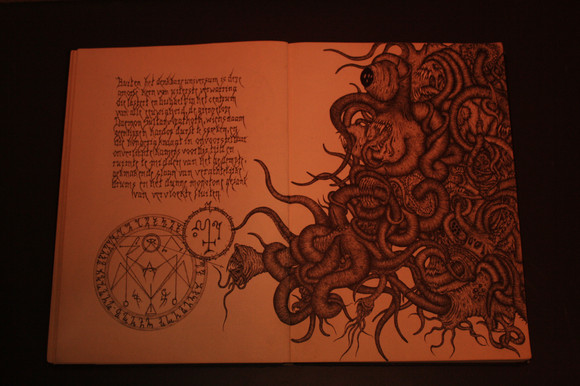 Buiten het denkbare universum is deze
amorfe kern van uiterste verwarring
die lastert en bubbelt in het centrum
van alle oneindigheid, de grenzeloze
Daemon Sultan Azathoth, wiens naam
geen lippen hardop durft te spreken, en
die hongerig knaagt in onvoorstelbare
onverlichte kamers voorbij tijd en
ruimte te midden van het gedempte,
gekmakende slaan van verachtelijke
drums en het dunne monotone
van vervloekte fluiten